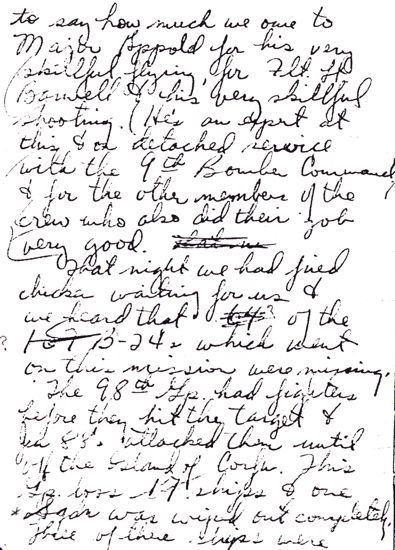 to say how much we owe to
Major Appold for his very
skillful flying, for Flt. Lt.
Barwell & his very skillful
shooting. (He's an expert at
this & on detached service
with the 9th Bomber Command,
& for the other members of the
crew who also did their job
very good.
That night we had fried
chicken waiting for us &
we heard that 64? of the
167 B-24s which went
on this mission were missing.
The 98th Gp. had fighters
before they hit the target &
88s attacked them until
off the Island of Corfu. This
Gp. loss 17 ships & one
* was wiped out completely.
Three of these ships were